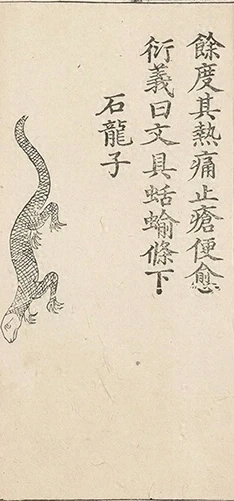 餘度其熱痛止瘡便愈
衍義曰文具蛞蝓條下
石龍子